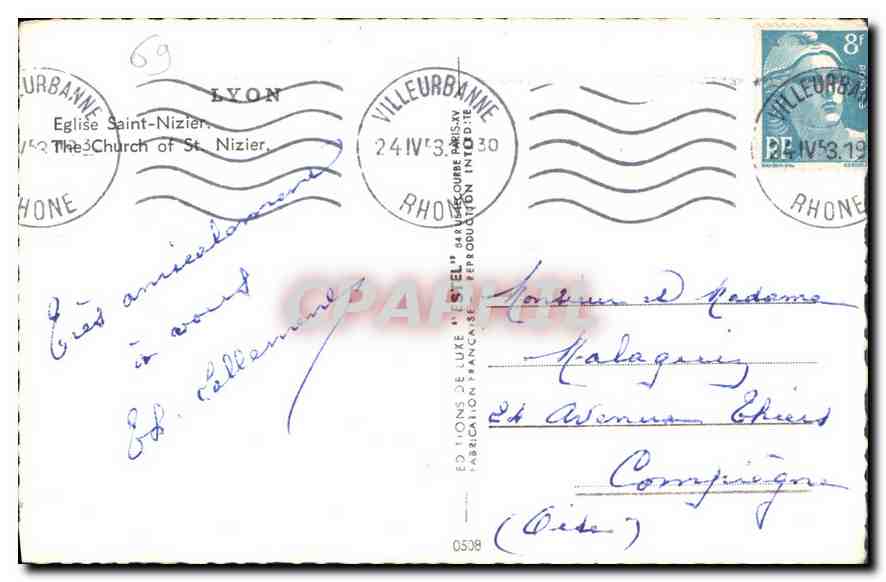 69
LYON
Eglise Saint-Nizier.
The Church of St. Nizier.
VILLEURBANNE
24 IV 53. 1930
RHONE
8f
RF
VILLEURBANNE
24 IV 53. 19
RHONE
URBANNE
RHONE
Très amicalement
à vous
Lallement
EDITIONS DE LUXE "ESTEL" 84 RUE LECOURBE PARIS-XV
FABRICATION FRANÇAISE REPRODUCTION INTERDITE
0508
Monsieur et Madame
24 Avenue Thiers
Compiègne
(Oise)
CPAPHIL